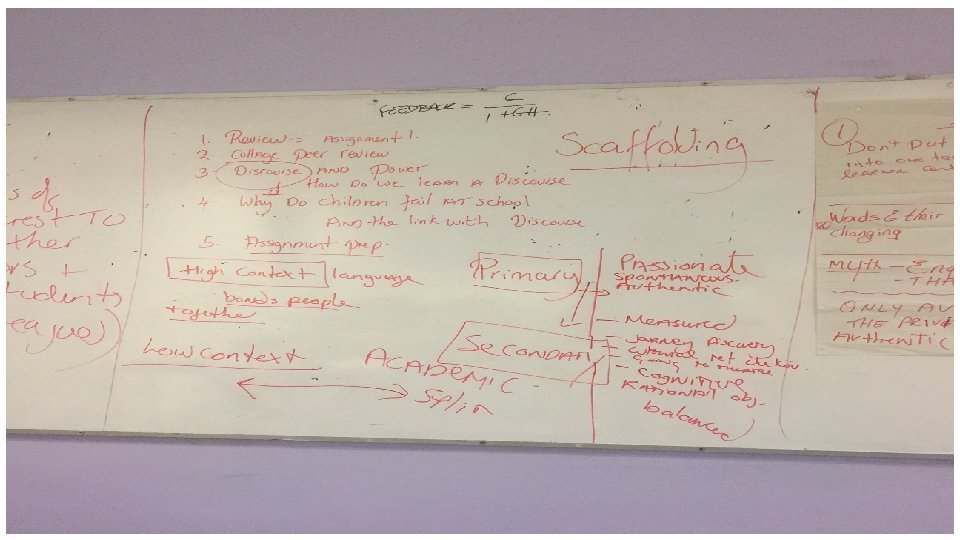 s of
rest TO
ther
ors +
tudents
league)
FEEDBACK =
1. Review = Assignment 1.
2 Collage Peer review
3. Discourse AND Power
How Do we learn A Discourse
4. Why Do children fail AT school
And the link with Discourse
5. Assignment Prep.
High Context language
bonds people
together
Low context
ACADEMIC
Split
Scaffolding
Primary
Secondary
PASSIONATE
SPONTANEOUS
Authentic
- Measured
- Journey Discovery
- Cognitive
RATIONAL obj.
balanced
1
Don't put
into one
learner
Words & their
changing
Myth - Eng
- THA
ONLY AU
THE PRIV
AUTHENTIC